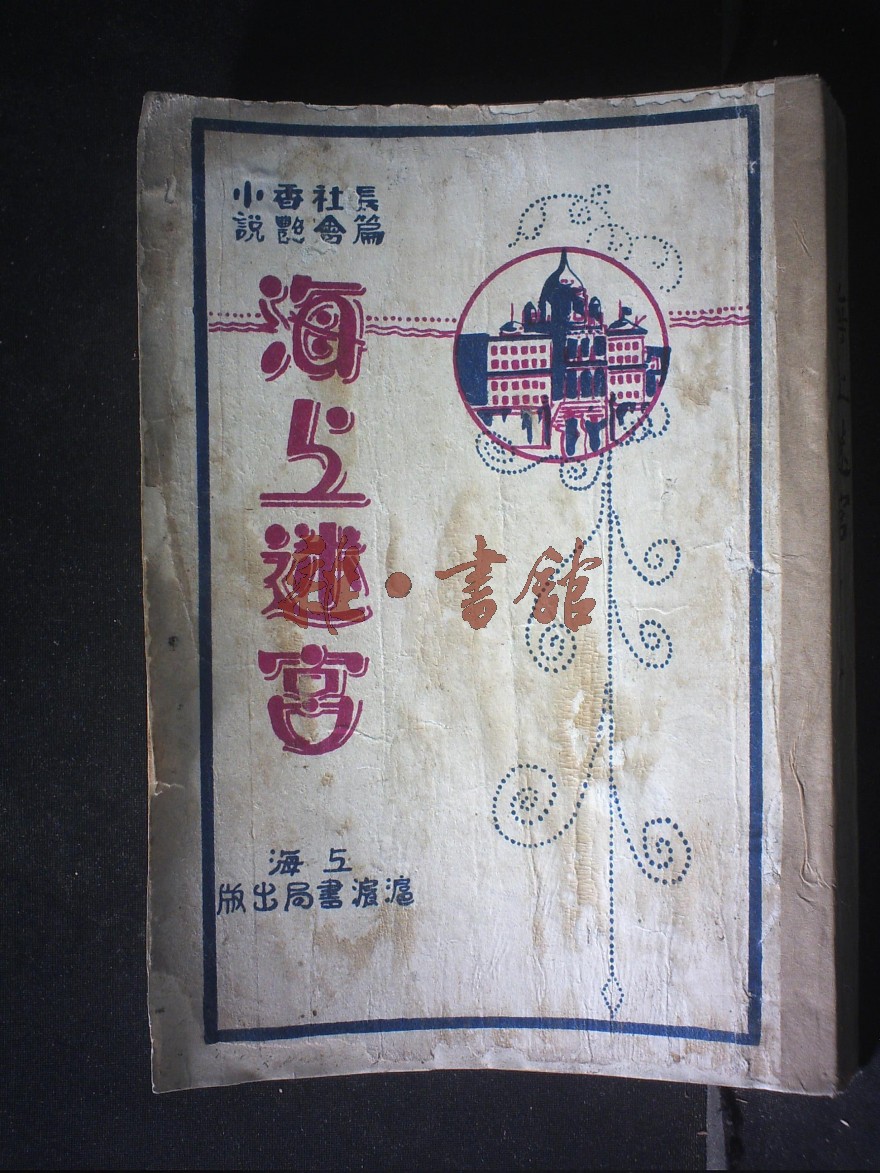 長篇
社會
香艷
小說
海上迷宮
書館
上海
滬濱書局出版